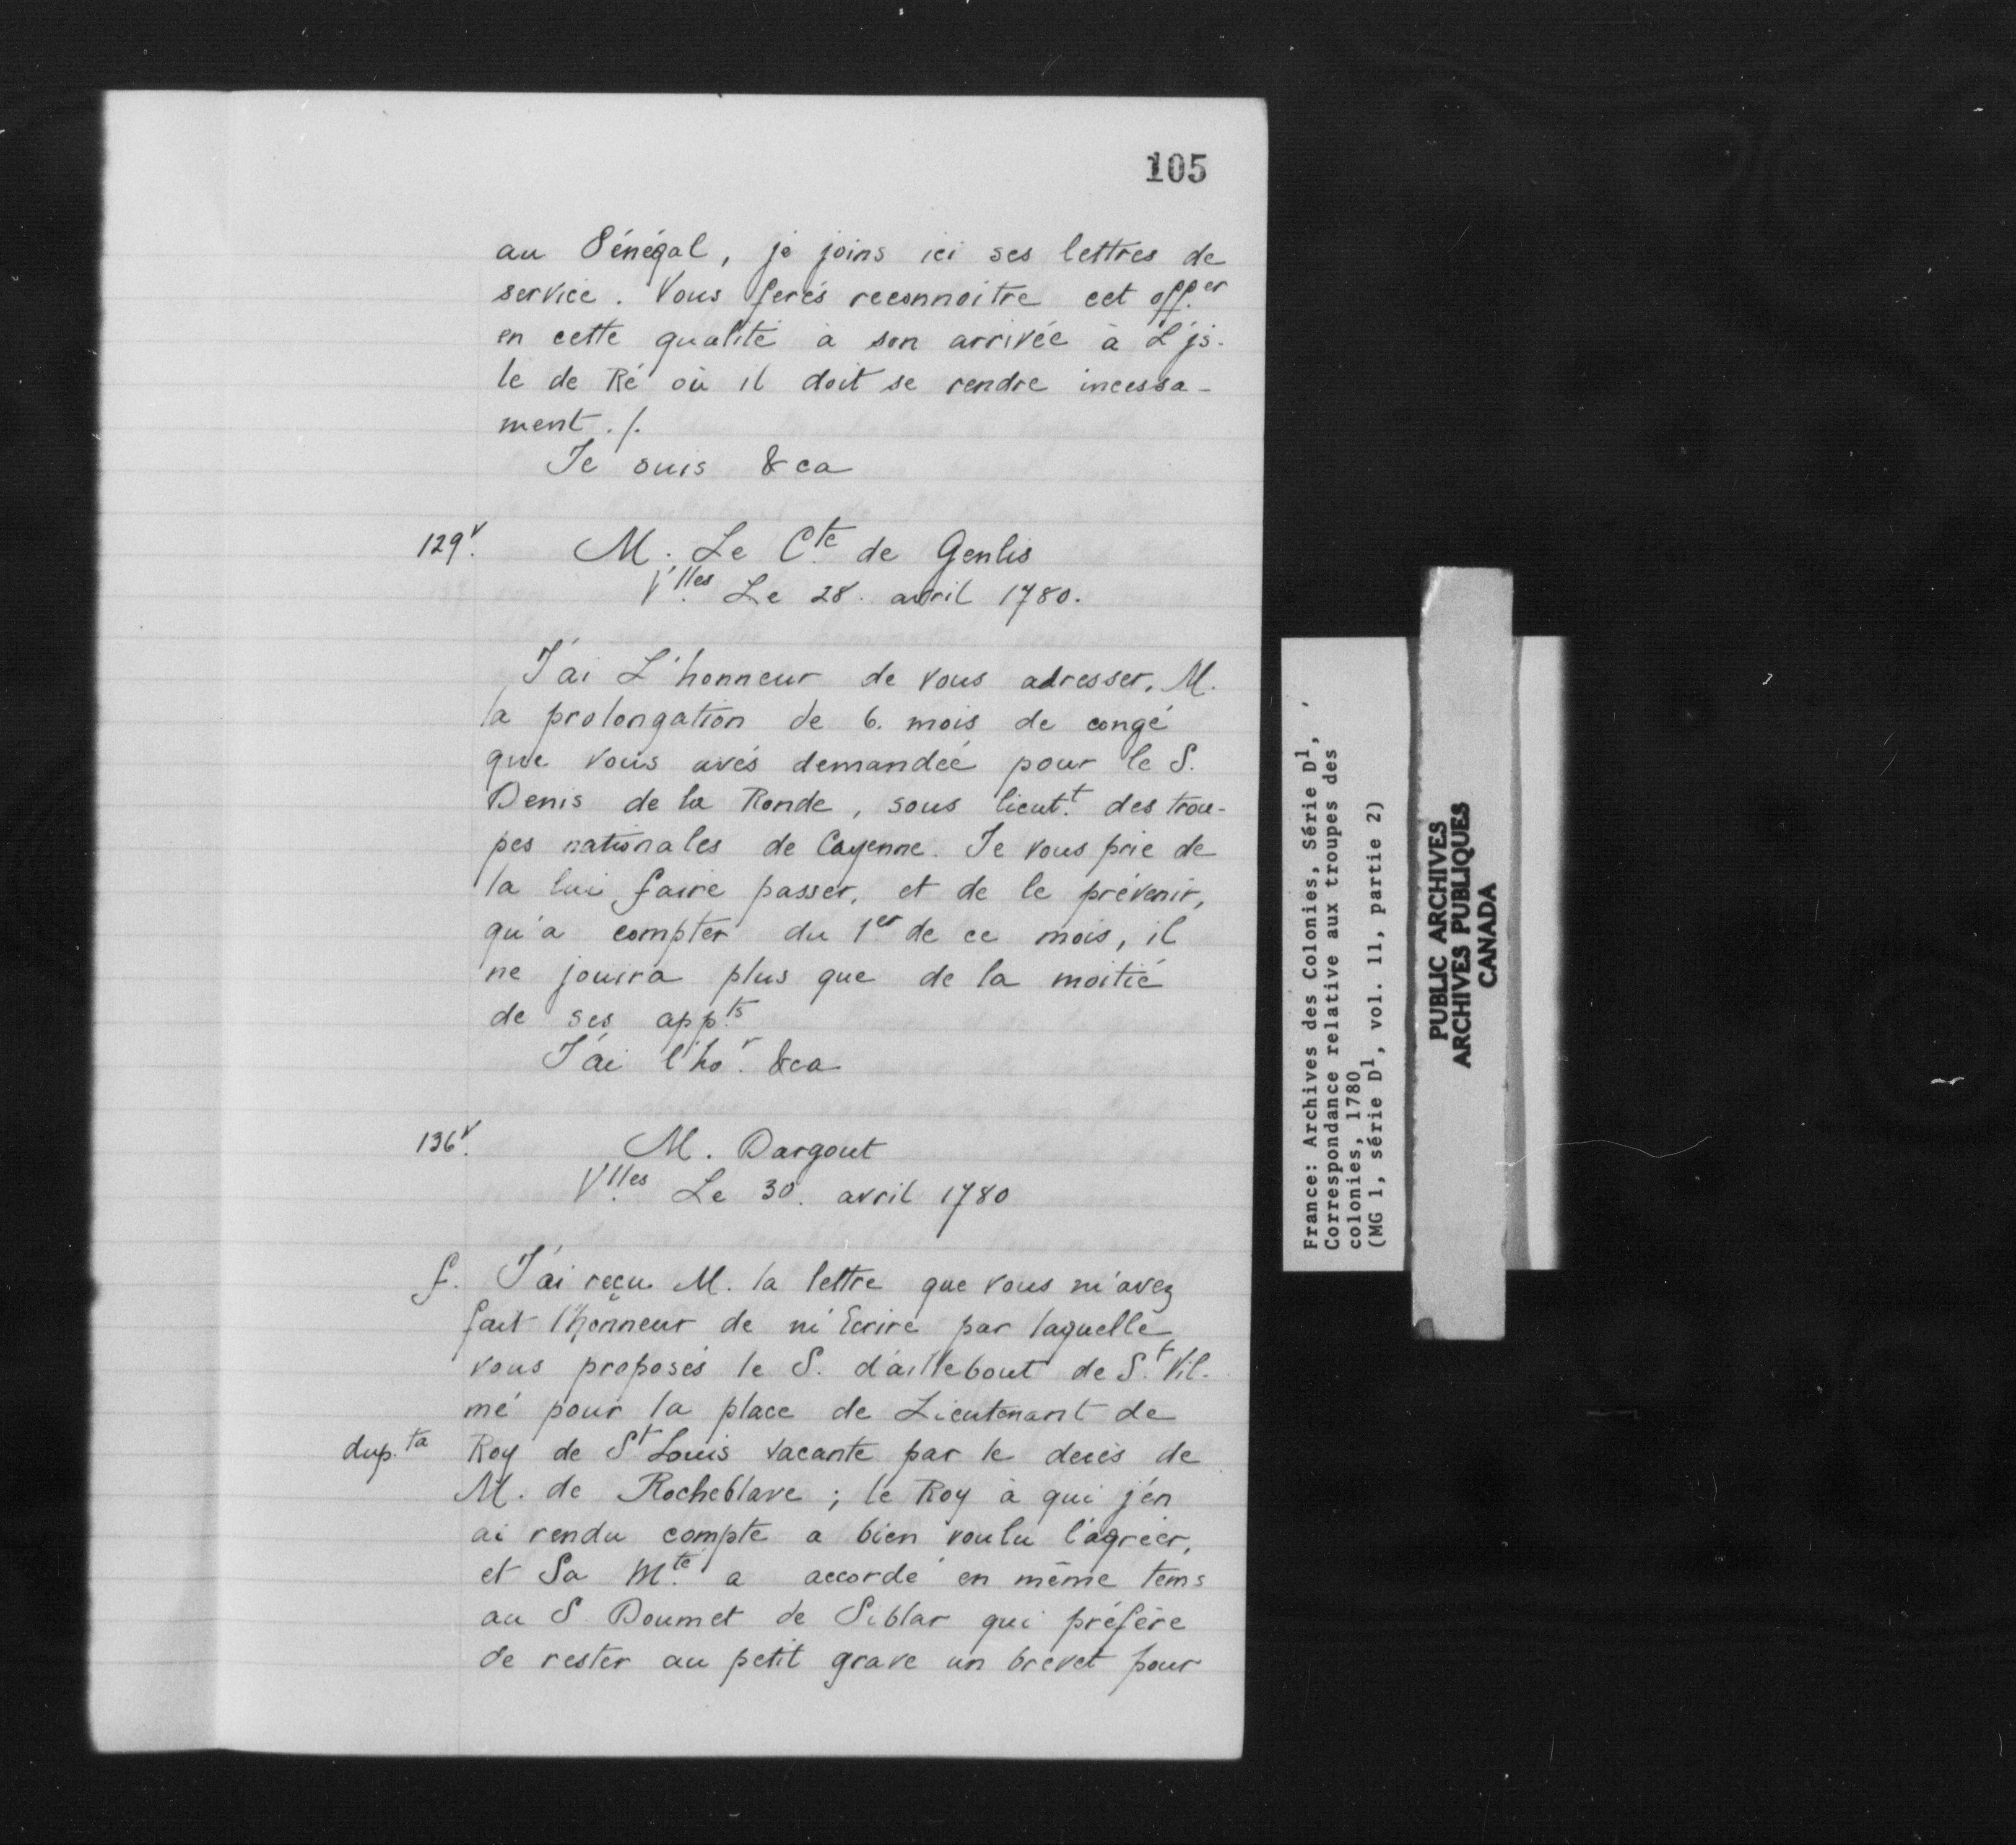 105
au Sénégal, je joins ici ses lettres de
service. Vous ferés reconnoitre cet off.er
en cette qualité à son arrivée à L'js-
le de Ré où il doit se rendre incessa-
ment ./.
Je suis &ca
129v. M. Le Cte de Genlis
V.lles Le 28. avril 1780.
J'ai L'honneur de vous adresser, M.
la prolongation de 6. mois de congé
que vous avés demandée pour le S.
Denis de la Ronde, sous lieut.t des trou-
pes nationales de Cayenne. Je vous prie de
la lui faire passer, et de le prévenir,
qu'a compter du 1er de ce mois, il
ne jouira plus que de la moitié
de ses app.ts
J'ai l'ho.r &ca
136v. M. Dargout
V.lles Le 30. avril 1780
f. J'ai reçu M. la lettre que vous m'avez
fait l'honneur de m'Ecrire par laquelle
vous proposés le S. d'aillebout de St. Vil-
mé pour la place de Lieutenant de
dup.ta Roy de St Louis vacante par le decès de
M. de Rocheblave ; le Roy à qui j'en
ai rendu compte a bien voulu l'agréer,
et Sa M.té a accordé en même tems
au S Doumet de Siblar qui préfère
de rester au petit grave un brevet pour
France: Archives des Colonies, Série D1,
Correspondance relative aux troupes des
colonies, 1780
(MG 1, série D1, vol. 11, partie 2)
PUBLIC ARCHIVES
ARCHIVES PUBLIQUES
CANADA